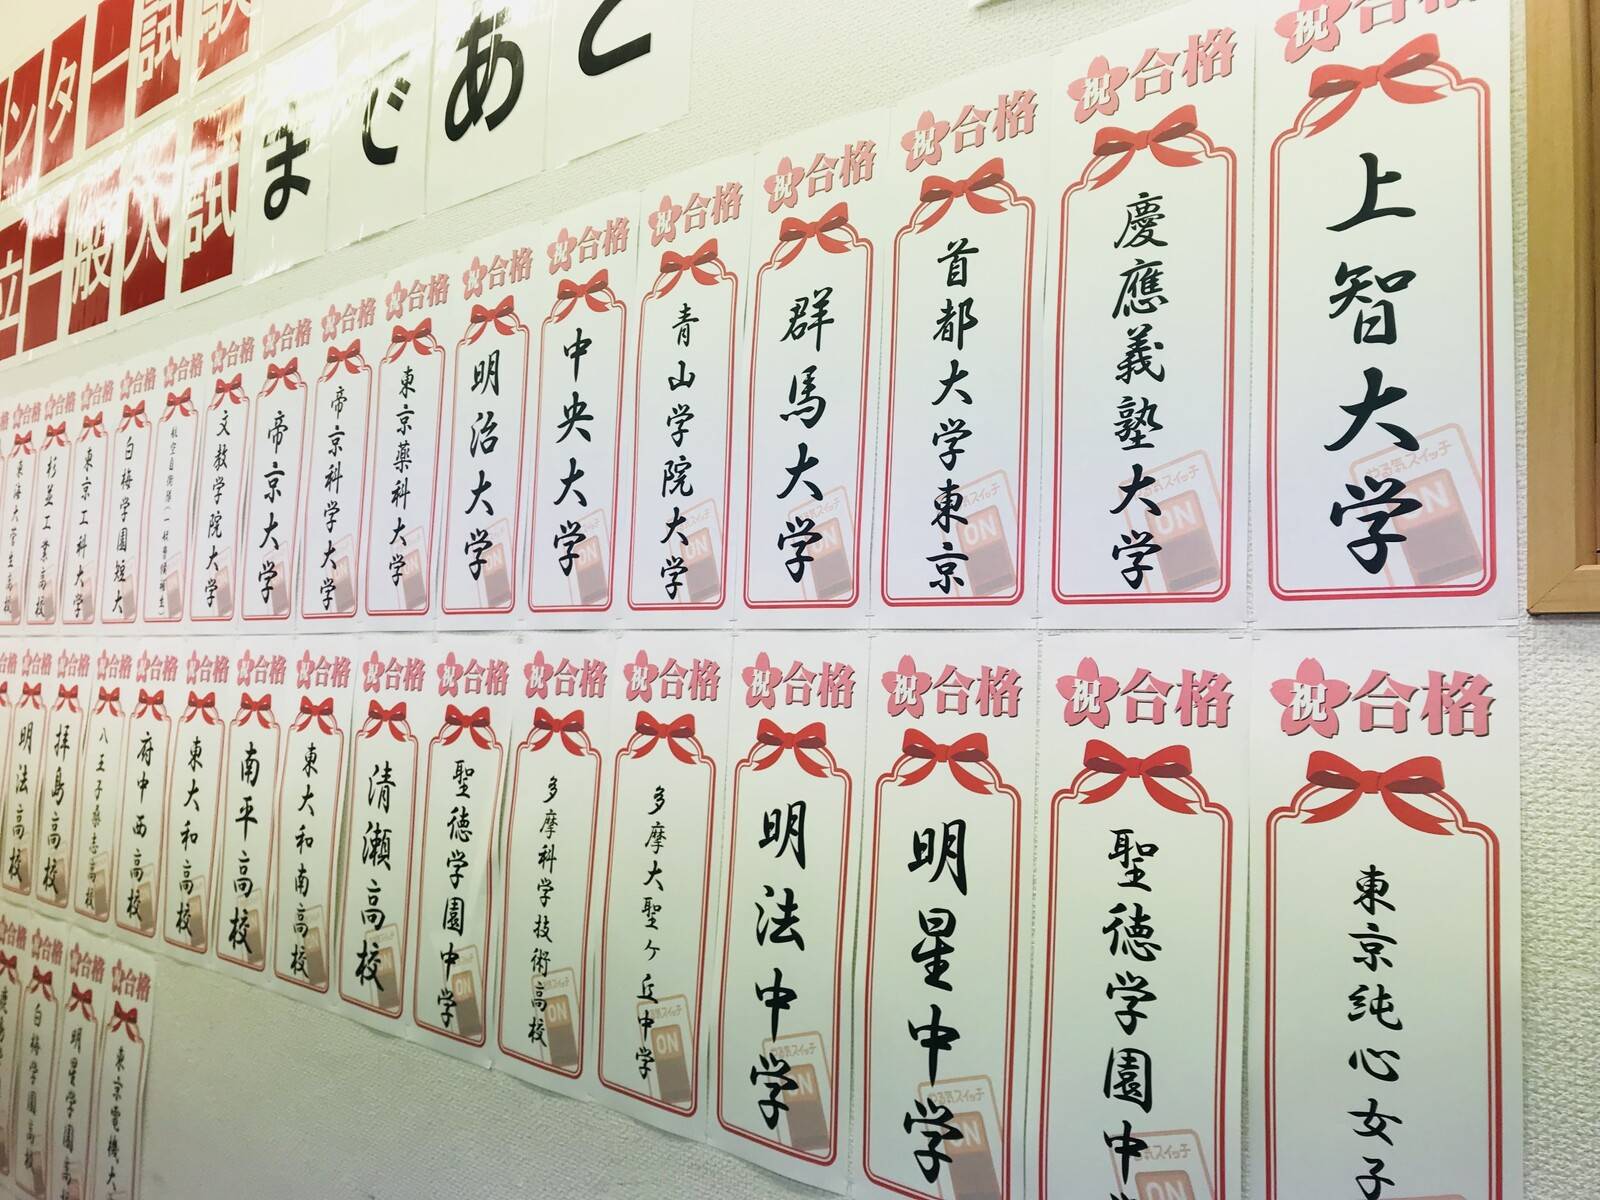 ンター試験
立一般入試
まであと
祝合格
上智大学
やる気スイッチ
ON
祝合格
慶應義塾大学
やる気スイッチ
ON
祝合格
首都大学東京
ON
祝合格
群馬大学
祝合格
青山学院大学
ON
祝合格
中央大学
祝合格
明治大学
祝合格
東京薬科大学
祝合格
帝京科学大学
祝合格
帝京大学
祝合格
文教学院大学
祝合格
航空自衛隊(一般曹候補生)
祝合格
白梅学園短大
祝合格
東京工科大学
合格
杉並工業高校
合格
東海大菅生高校
祝合格
東京純心女子
祝合格
聖徳学園中
やる気スイッチ
ON
祝合格
明星中学
やる気スイッチ
ON
祝合格
明法中学
やる気スイッチ
ON
祝合格
多摩大聖ヶ丘中学
ON
祝合格
多摩科学技術高校
ON
祝合格
聖徳学園中学
祝合格
清瀬高校
祝合格
東大和南高校
祝合格
南平高校
祝合格
東大和高校
祝合格
府中西高校
祝合格
八王子桑志高校
祝合格
拝島高校
合格
明法高校
祝合格
東京電機大
祝合格
明星学園高
合格
白梅学園高校
合格